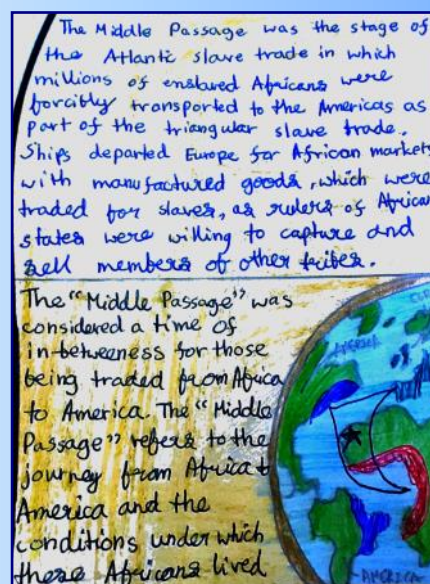 The Middle Passage was the stage of
the Atlantic slave trade in which
millions of enslaved Africans were
forcibly transported to the Americas as
part of the triangular slave trade.
Ships departed Europe for African markets
with manufactured goods, which were
traded for slaves, as rulers of African
states were willing to capture and
sell members of other tribes.
The "Middle Passage" was
considered a time of
in-betweeness for those
being traded from Africa
to America. The "Middle
Passage" refers to the
journey from Africa to
America and the
conditions under which
these Africans lived
AMERICA